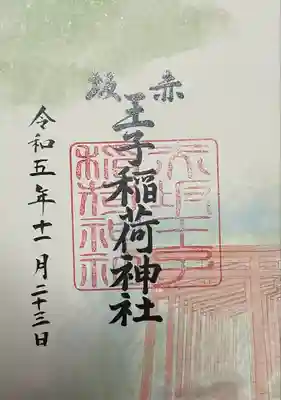 赤坂
王子稲荷神社
令和五年十一月二十三日